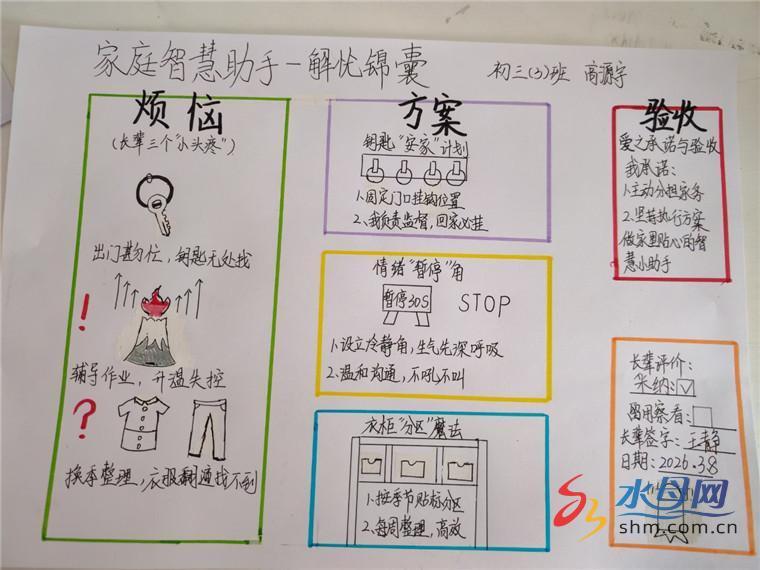 家庭智慧助手-解忧锦囊
初三(3)班 高源宇
烦恼
(长辈三个"小头疼")
出门匆忙,钥匙无处找
!
辅导作业,升温失控
?
换季整理,衣服翻遍找不到
方案
钥匙"安家"计划
1.固定门口挂钩位置
2.我负责监督,回家必挂
情绪"暂停"角
暂停30S STOP
1.设立冷静角,生气先深呼吸
2.温和沟通,不吼不叫
衣柜"分区"魔法
1.按季节贴标分区
2.每周整理,高效
验收
爱之承诺与验收
我承诺:
1.主动分担家务
2.坚持执行方案
做家里贴心的智
慧小助手
长辈评价:
采纳:☑
留用察看:□
长辈签字:王静
日期:2026.3.8
水母网
shm.com.cn